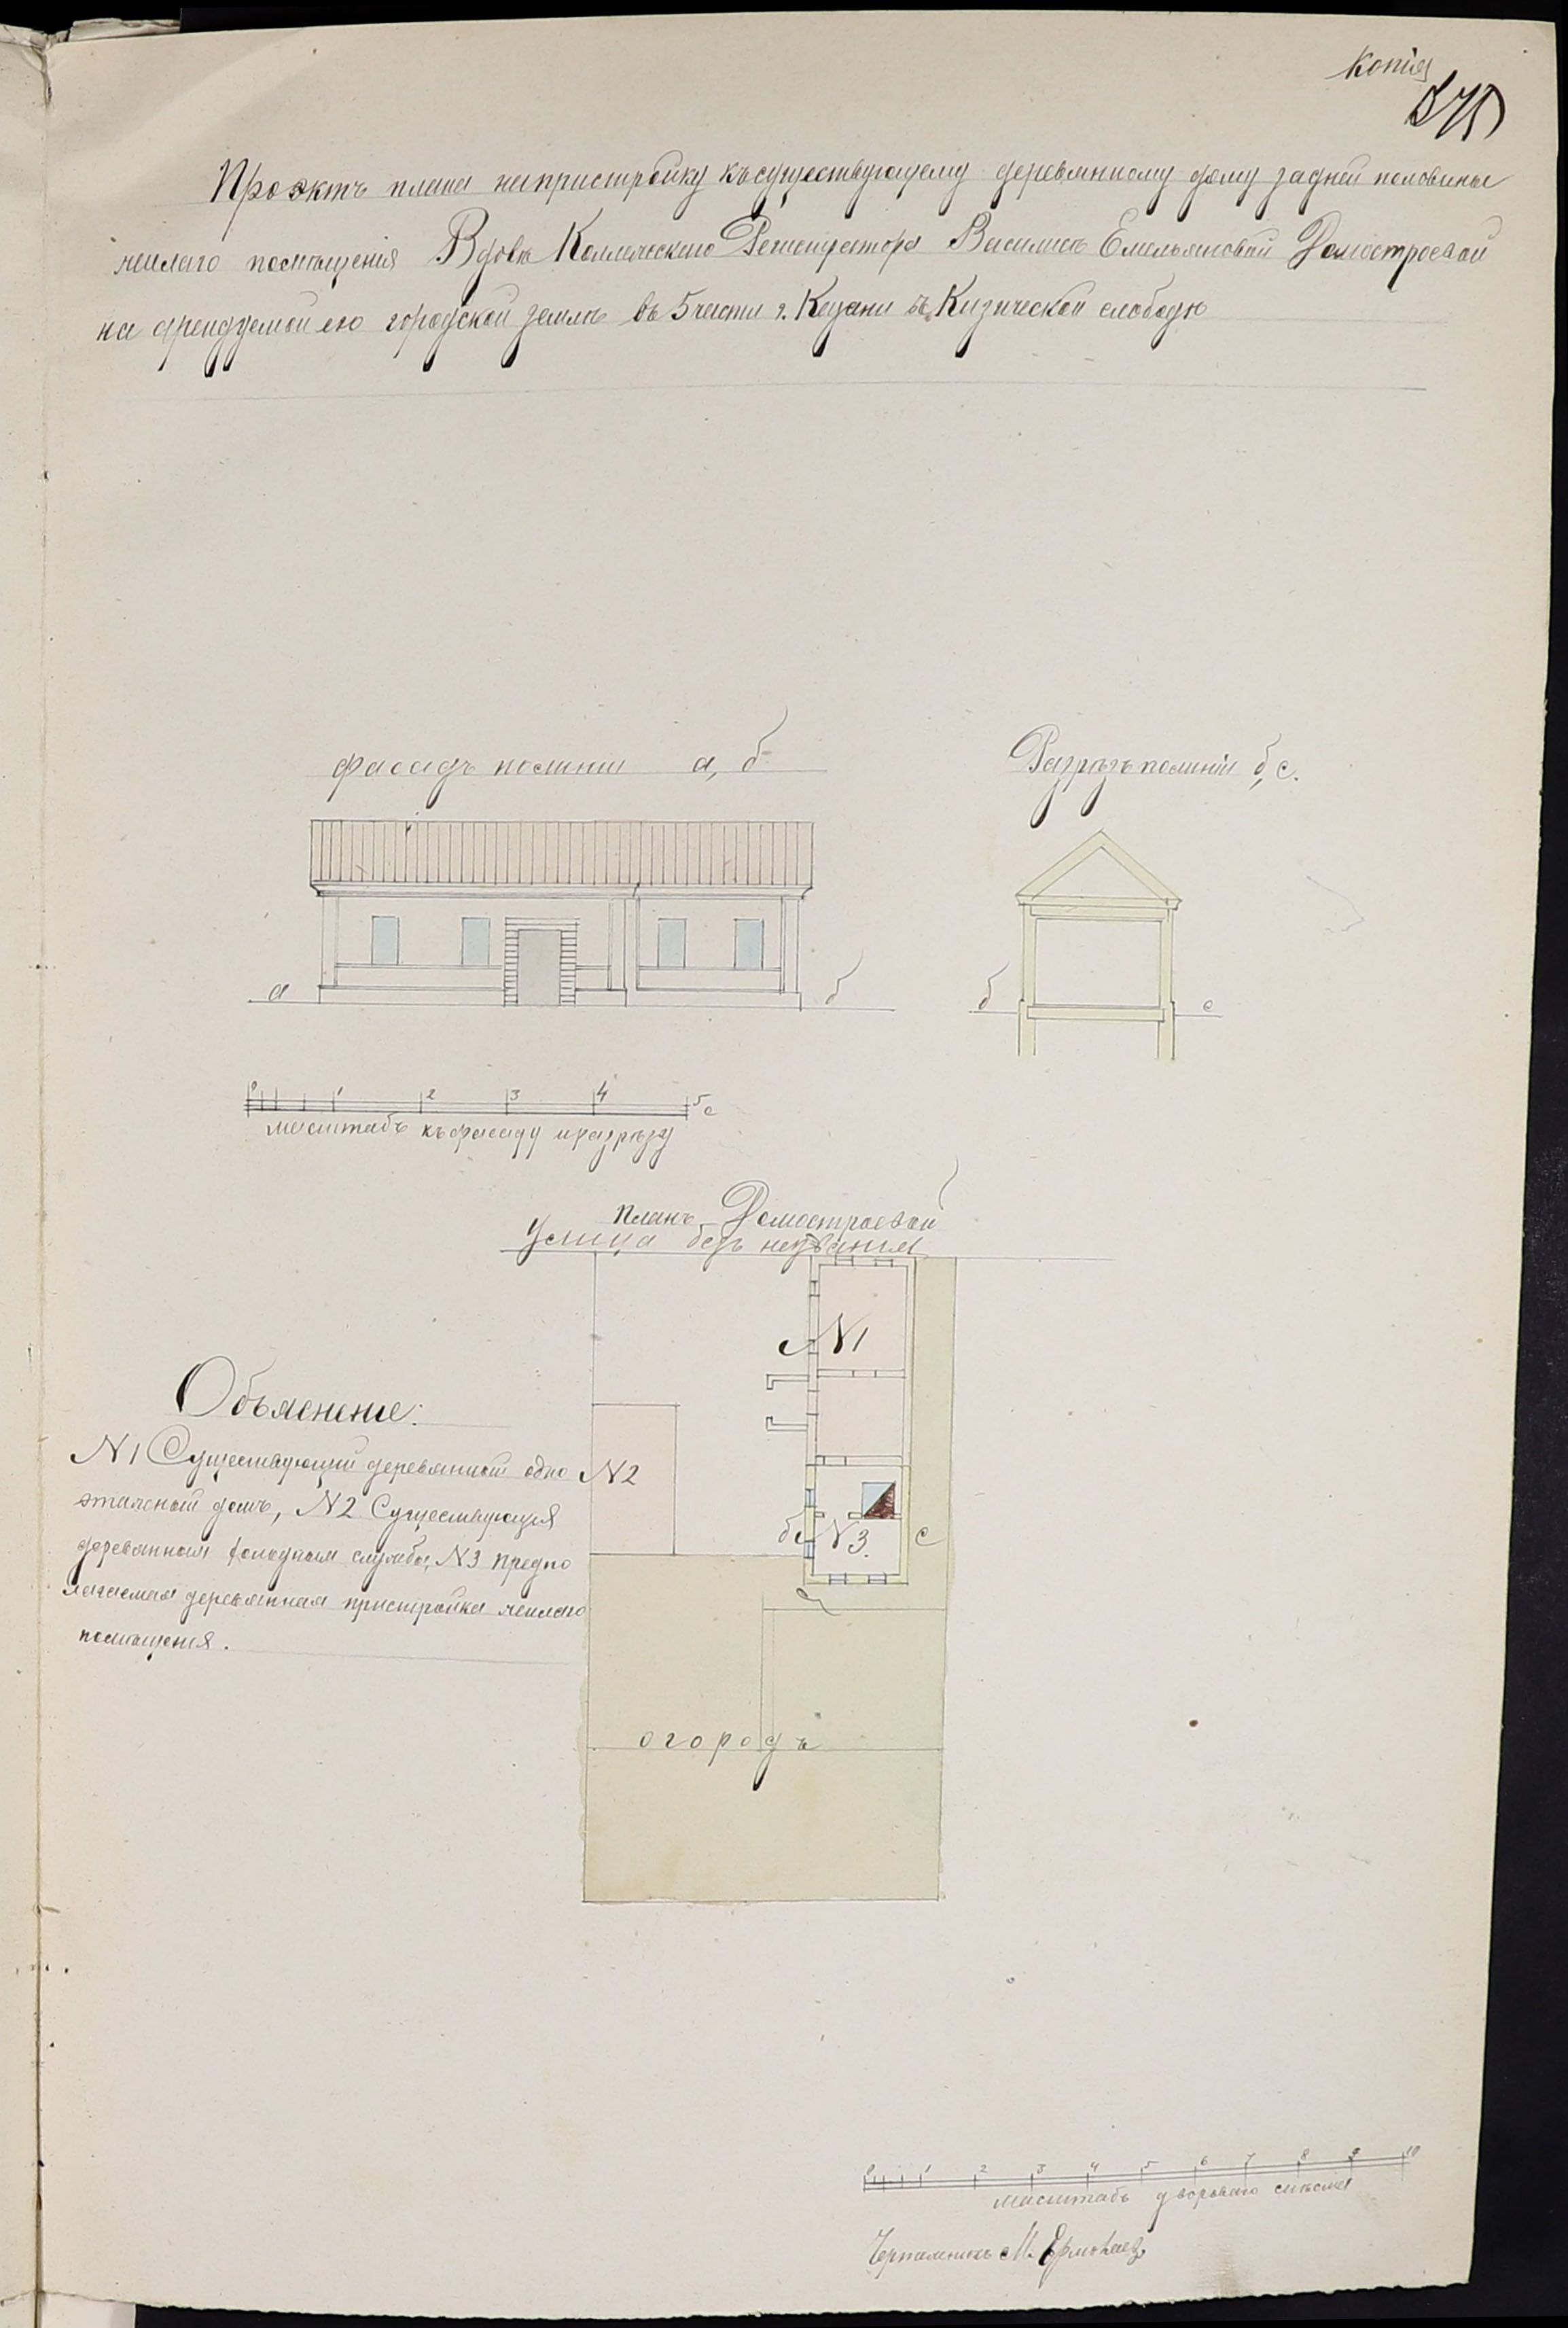 Копія
Проэктъ плана на пристройку къ существующему деревянному дому задней половины
жилаго помѣщенія Вдовѣ Коллежскаго Регистратора Василисѣ Емельяновой Домостроевой
на арендуемой ею городской землѣ въ 5 части г. Казани въ Кизической слободѣ
фасадъ по линіи а, б
Разрѣзъ по линіи б, с.
а
б
б
с
0 1 2 3 4 5 с
масштабъ къ фасаду и разрѣзу
планъ Домостроевой
Улица безъ названія
N 1
Объясненіе:
N 1 Существующій деревянный одно
этажный домъ, N 2 Существующія
деревянныя холодныя службы, N 3 предпо
лагаемая деревянная пристройка жилаго
помѣщенія.
N 2
б N 3. с
а
огородъ
0 1 2 3 4 5 6 7 8 9 10
масштабъ двороваго
Чертежникъ М.